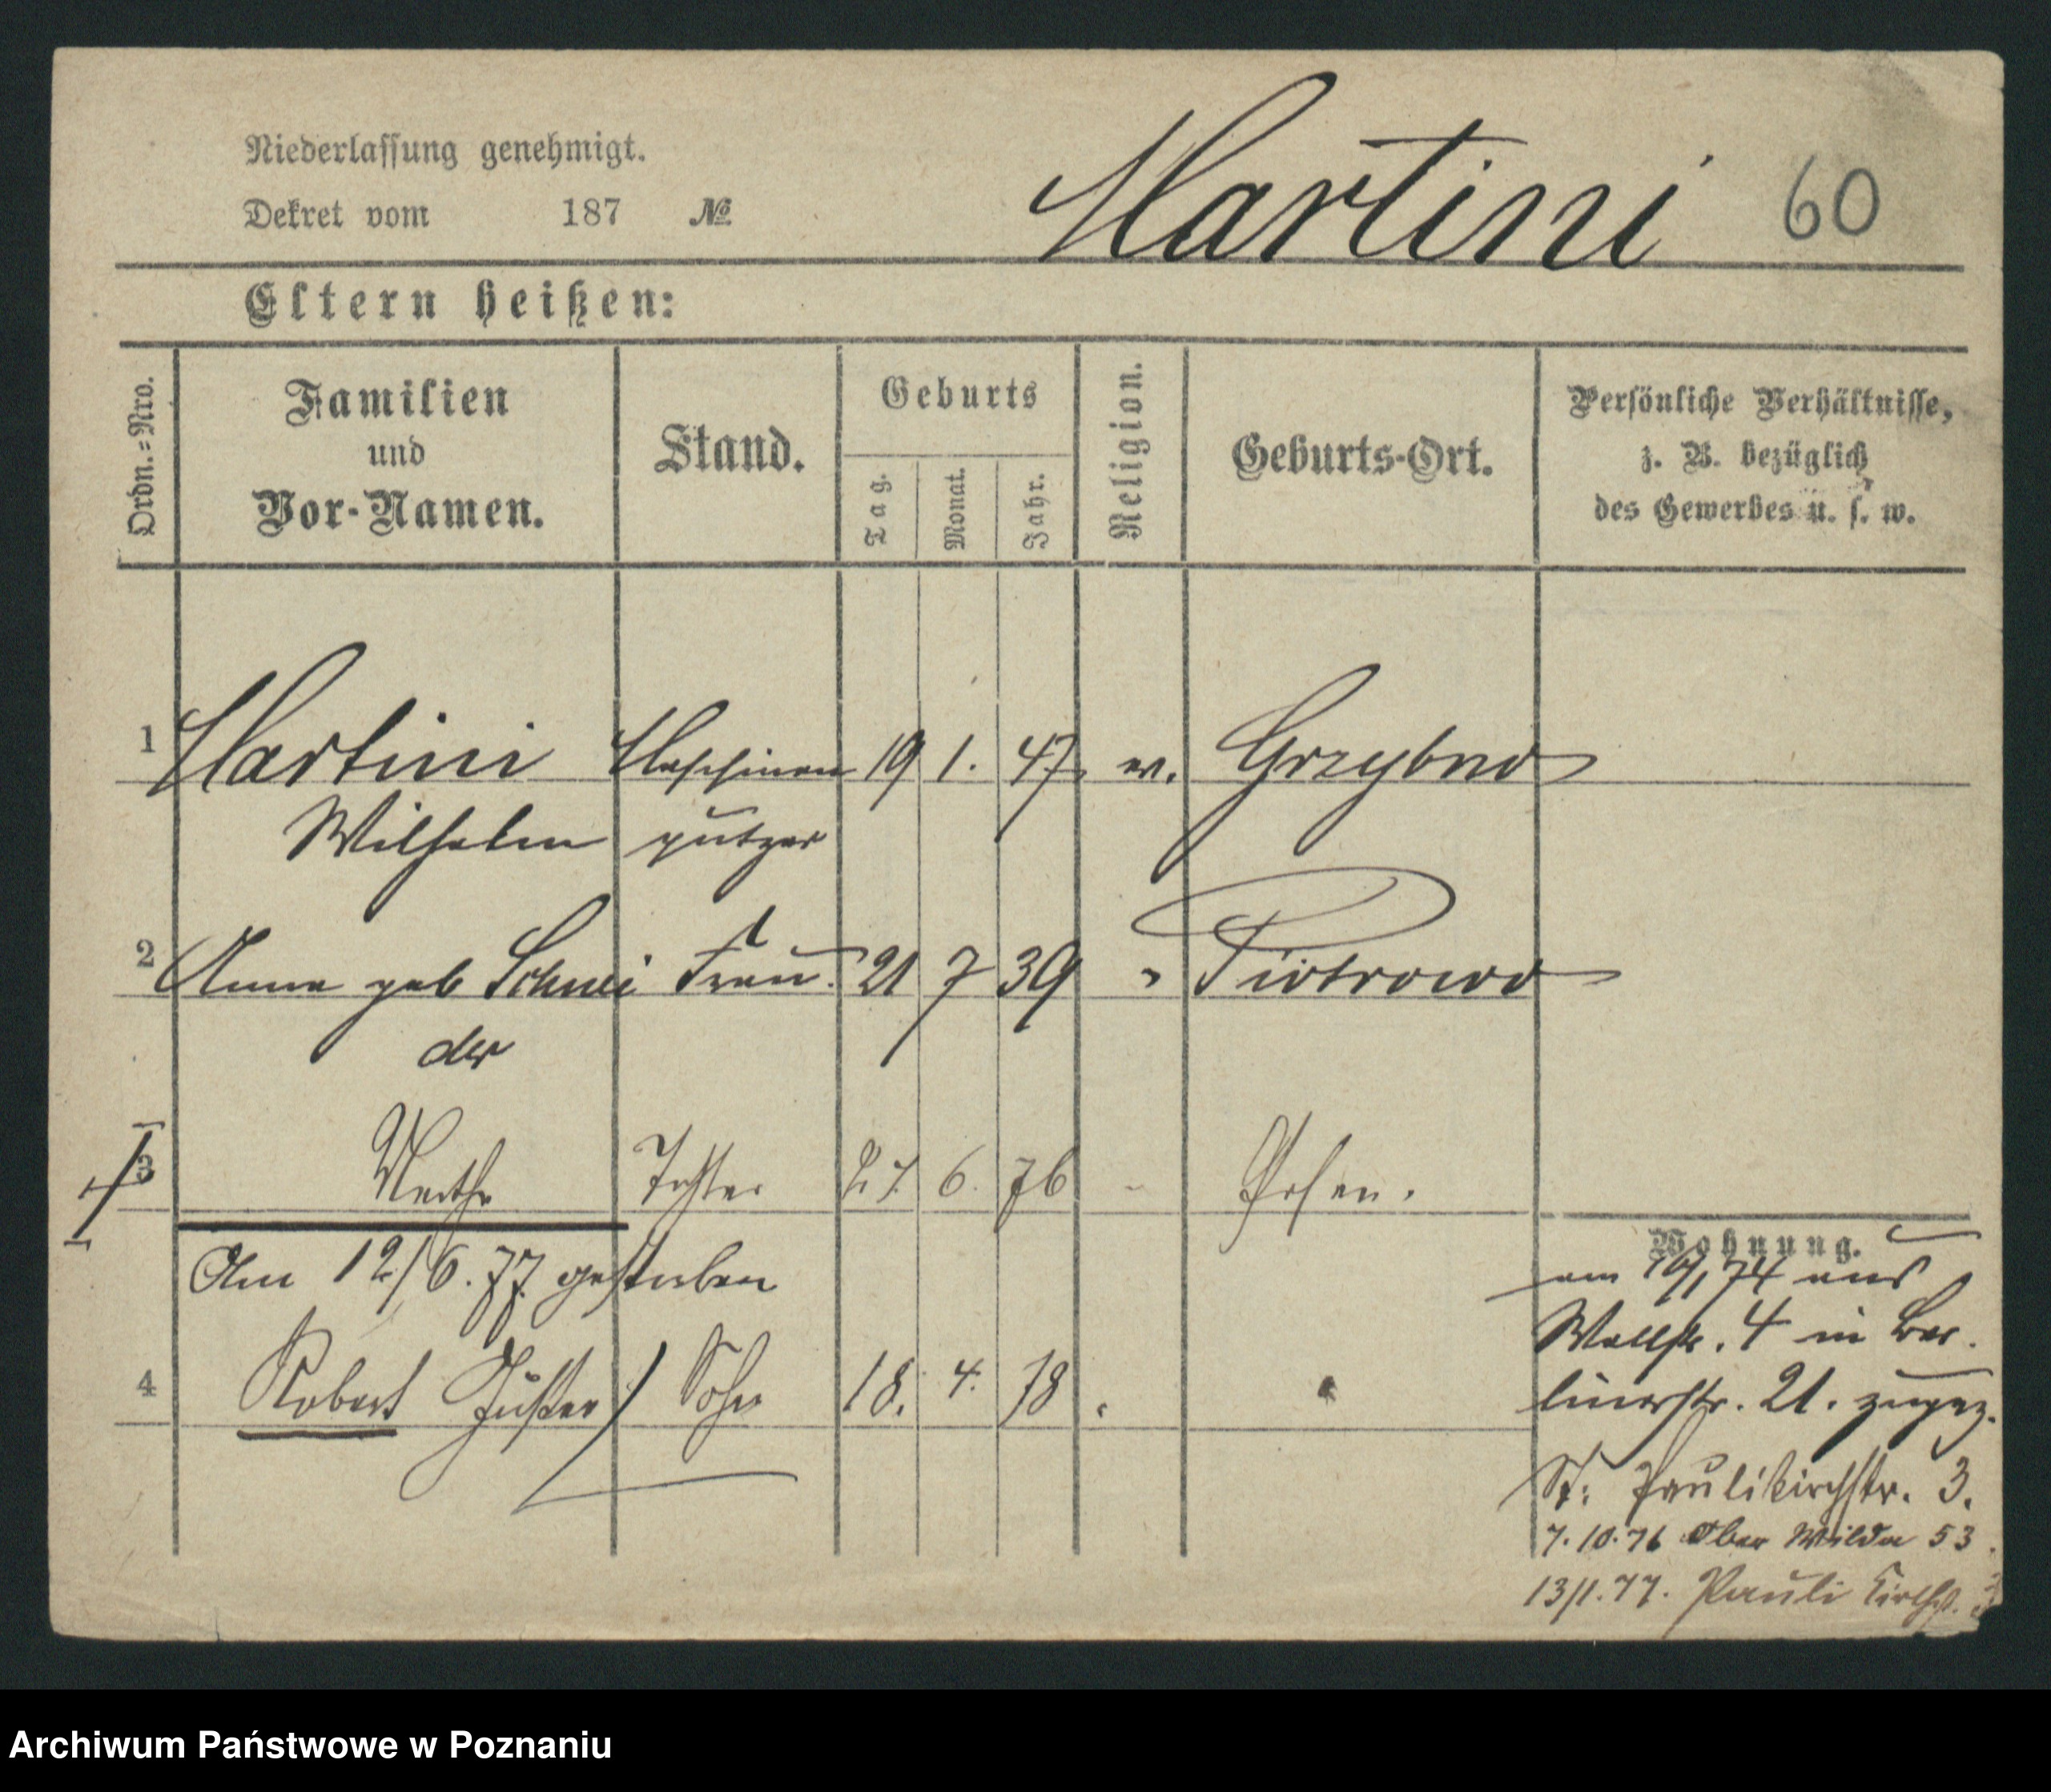 Niederlassung genehmigt.
Dekret vom 187 №
Martini 60
Eltern heißen:
Ordn.=Nro.
Familien
und
Vor-Namen.
Stand.
Geburts
Tag.
Monat.
Jahr.
Religion.
Geburts-Ort.
Persönliche Verhältnisse,
z. B. bezüglich
des Gewerbes u. s. w.
1 Martini Maschinen 19 1. 47 ev. Grzybno
Wilhelm putzer
2 Anna geb Schnei Frau 21 7 39 " Piotrowo
der
3 Tochter 27. 6. 76 - Posen.
Am 12/6.77. gestorben
4 Robert Gustav Sohn 18. 4. 78
Wohnung.
am 74 aus
Wallstr. 4 in Ber
linerstr. 21. zugez.
St. Paulikirchstr. 3.
7.10.76 Ober Wilda 53.
13/1.77. Pauli Kirchst. 3
Archiwum Państwowe w Poznaniu